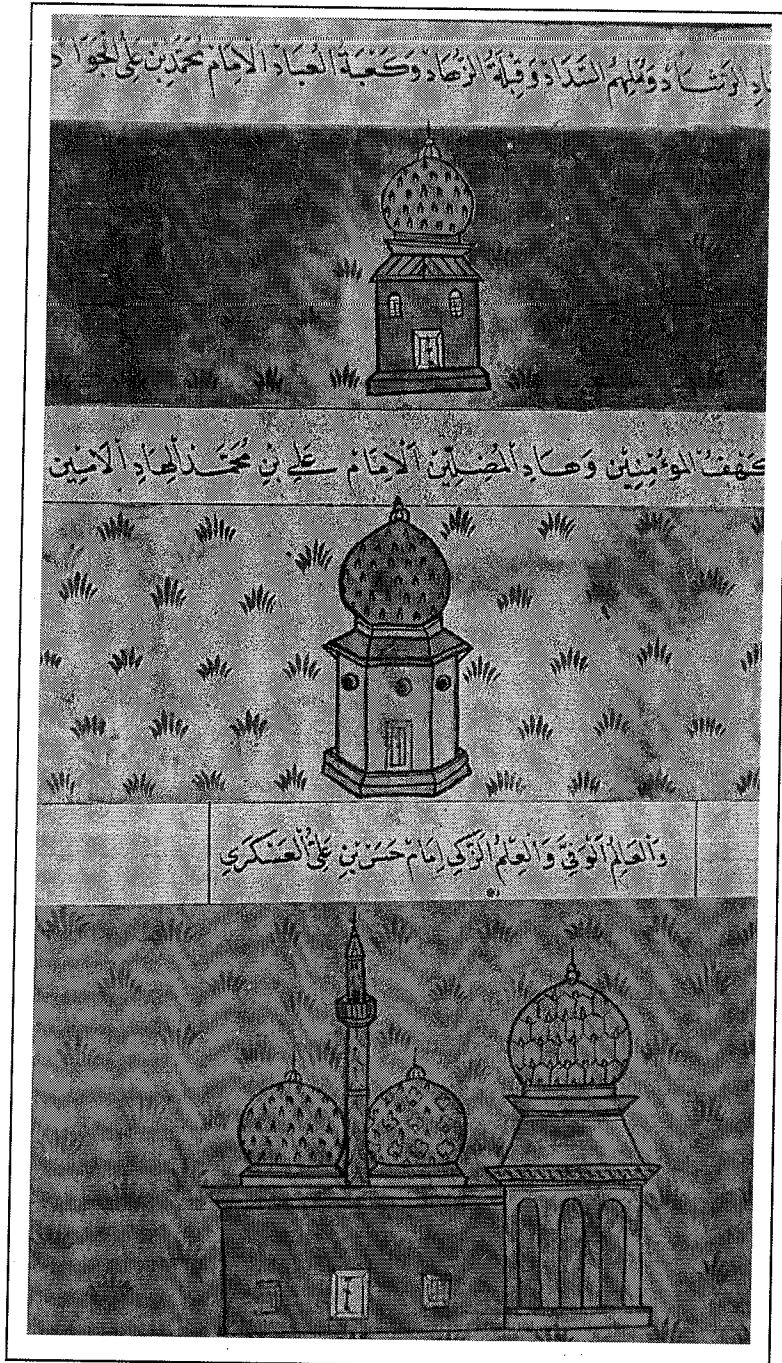 الرشاد وملهم السداد وقبلة الزهاد وكعبة العباد الامام محمد بن علي الجواد
كهف المؤمنين وهاد المضلين الامام علي بن محمد الهاد الامين
والعالم الوفي والعلم الزكي امام حسن بن علي العسكري